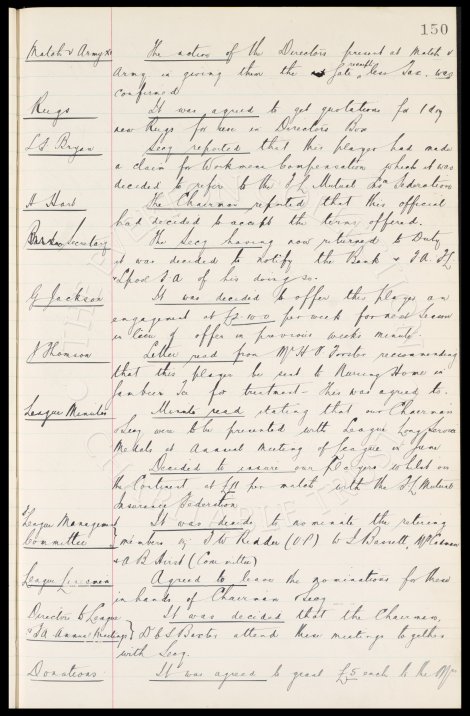 150
Match v Army The action of the Directors present at Match v
Army in giving them the Gate receipts less Tax. was
confirmed
Rugs It was agreed to get quotations for 1 doz
new Rugs for use in Directors Box
Secy reported that this player had made
a claim for Workmens Compensation which it was
decided to refer to the F L Mutual Ins Federation
H Hart The Chairman reported that this official
had decided to accept the terms offered.
Secretary The Secy having now returned to Duty
it was decided to notify the Bank & F A. F L
& Lpool F A of his doing so.
G Jackson It was decided to offer this player an
engagement at £2.10.0 per week for next Season
in lieu of offer in previous weeks minute
J Thomson Letter read from Mr H O recommending
that this player be sent to Nursing Home in
for treatment - This was agreed to.
League Minutes Minute read stating that our Chairman
& Secy were to be presented with League Long Service
Medals at Annual Meeting of League in June
Decided to insure our Players whilst on
the Continent at per match with the F L Mutual
Insurance Federation
League Management It was decide to nominate the retiring
Committee } members viz T. W (V P) W S
& A B Hirst (Committee)
League Linesmen Agreed to leave the nominations for these
in hands of Chairman & Secy
Directors to League It was decided that the Chairman,
& F A Annual Meetings } Dr & S Baxter attend these meetings together
with Secy.
Donations It was agreed to grant £5 each to the